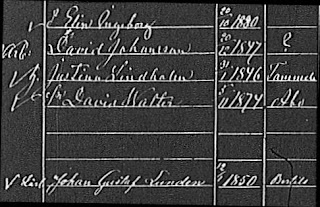 E Elin Ingeborg 20/10 1880
Arb: David Johansson 20/10 1847 ?
h. Justina Lindholm 31/1 1846 Tammela
S. David Walter 5/11 1874 Åbo
Johan Gustaf Lunden 12/9 1850